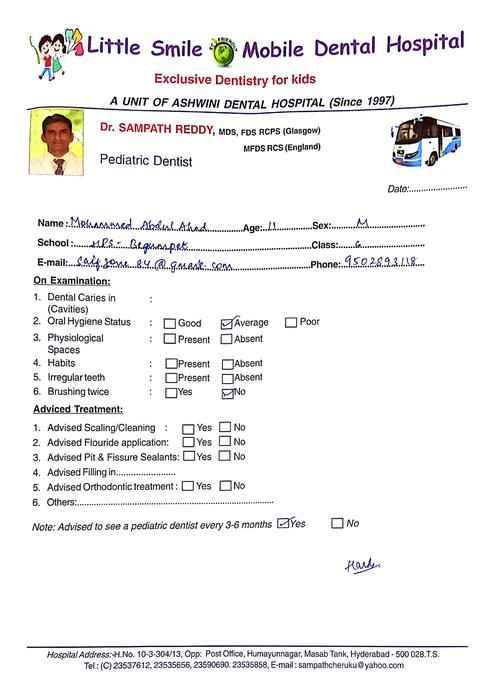 Little Smile Mobile Dental Hospital
Exclusive Dentistry for kids
A UNIT OF ASHWINI DENTAL HOSPITAL (Since 1997)
Dr. SAMPATH REDDY, MDS, FDS RCPS (Glasgow)
MFDS RCS (England)
Pediatric Dentist
Date:
Name: Mohammed Abdul Ahad Age: 11 Sex: M
School: HPS - Begumpet Class: 6
E-mail: 84@gmail.com Phone: 9502893118
On Examination:
1. Dental Caries in :
(Cavities)
2. Oral Hygiene Status : Good Average Poor
3. Physiological : Present Absent
Spaces
4. Habits : Present Absent
5. Irregular teeth : Present Absent
6. Brushing twice : Yes No
Adviced Treatment:
1. Advised Scaling/Cleaning : Yes No
2. Advised Flouride application: Yes No
3. Advised Pit & Fissure Sealants: Yes No
4. Advised Filling in
5. Advised Orthodontic treatment : Yes No
6. Others:
Note: Advised to see a pediatric dentist every 3-6 months Yes No
Hospital Address:-H.No. 10-3-304/13, Opp: Post Office, Humayunnagar, Masab Tank, Hyderabad - 500 028.T.S.
Tel.: (C) 23537612, 23535656, 23590690. 23535858, E-mail : sampathcheruku@yahoo.com